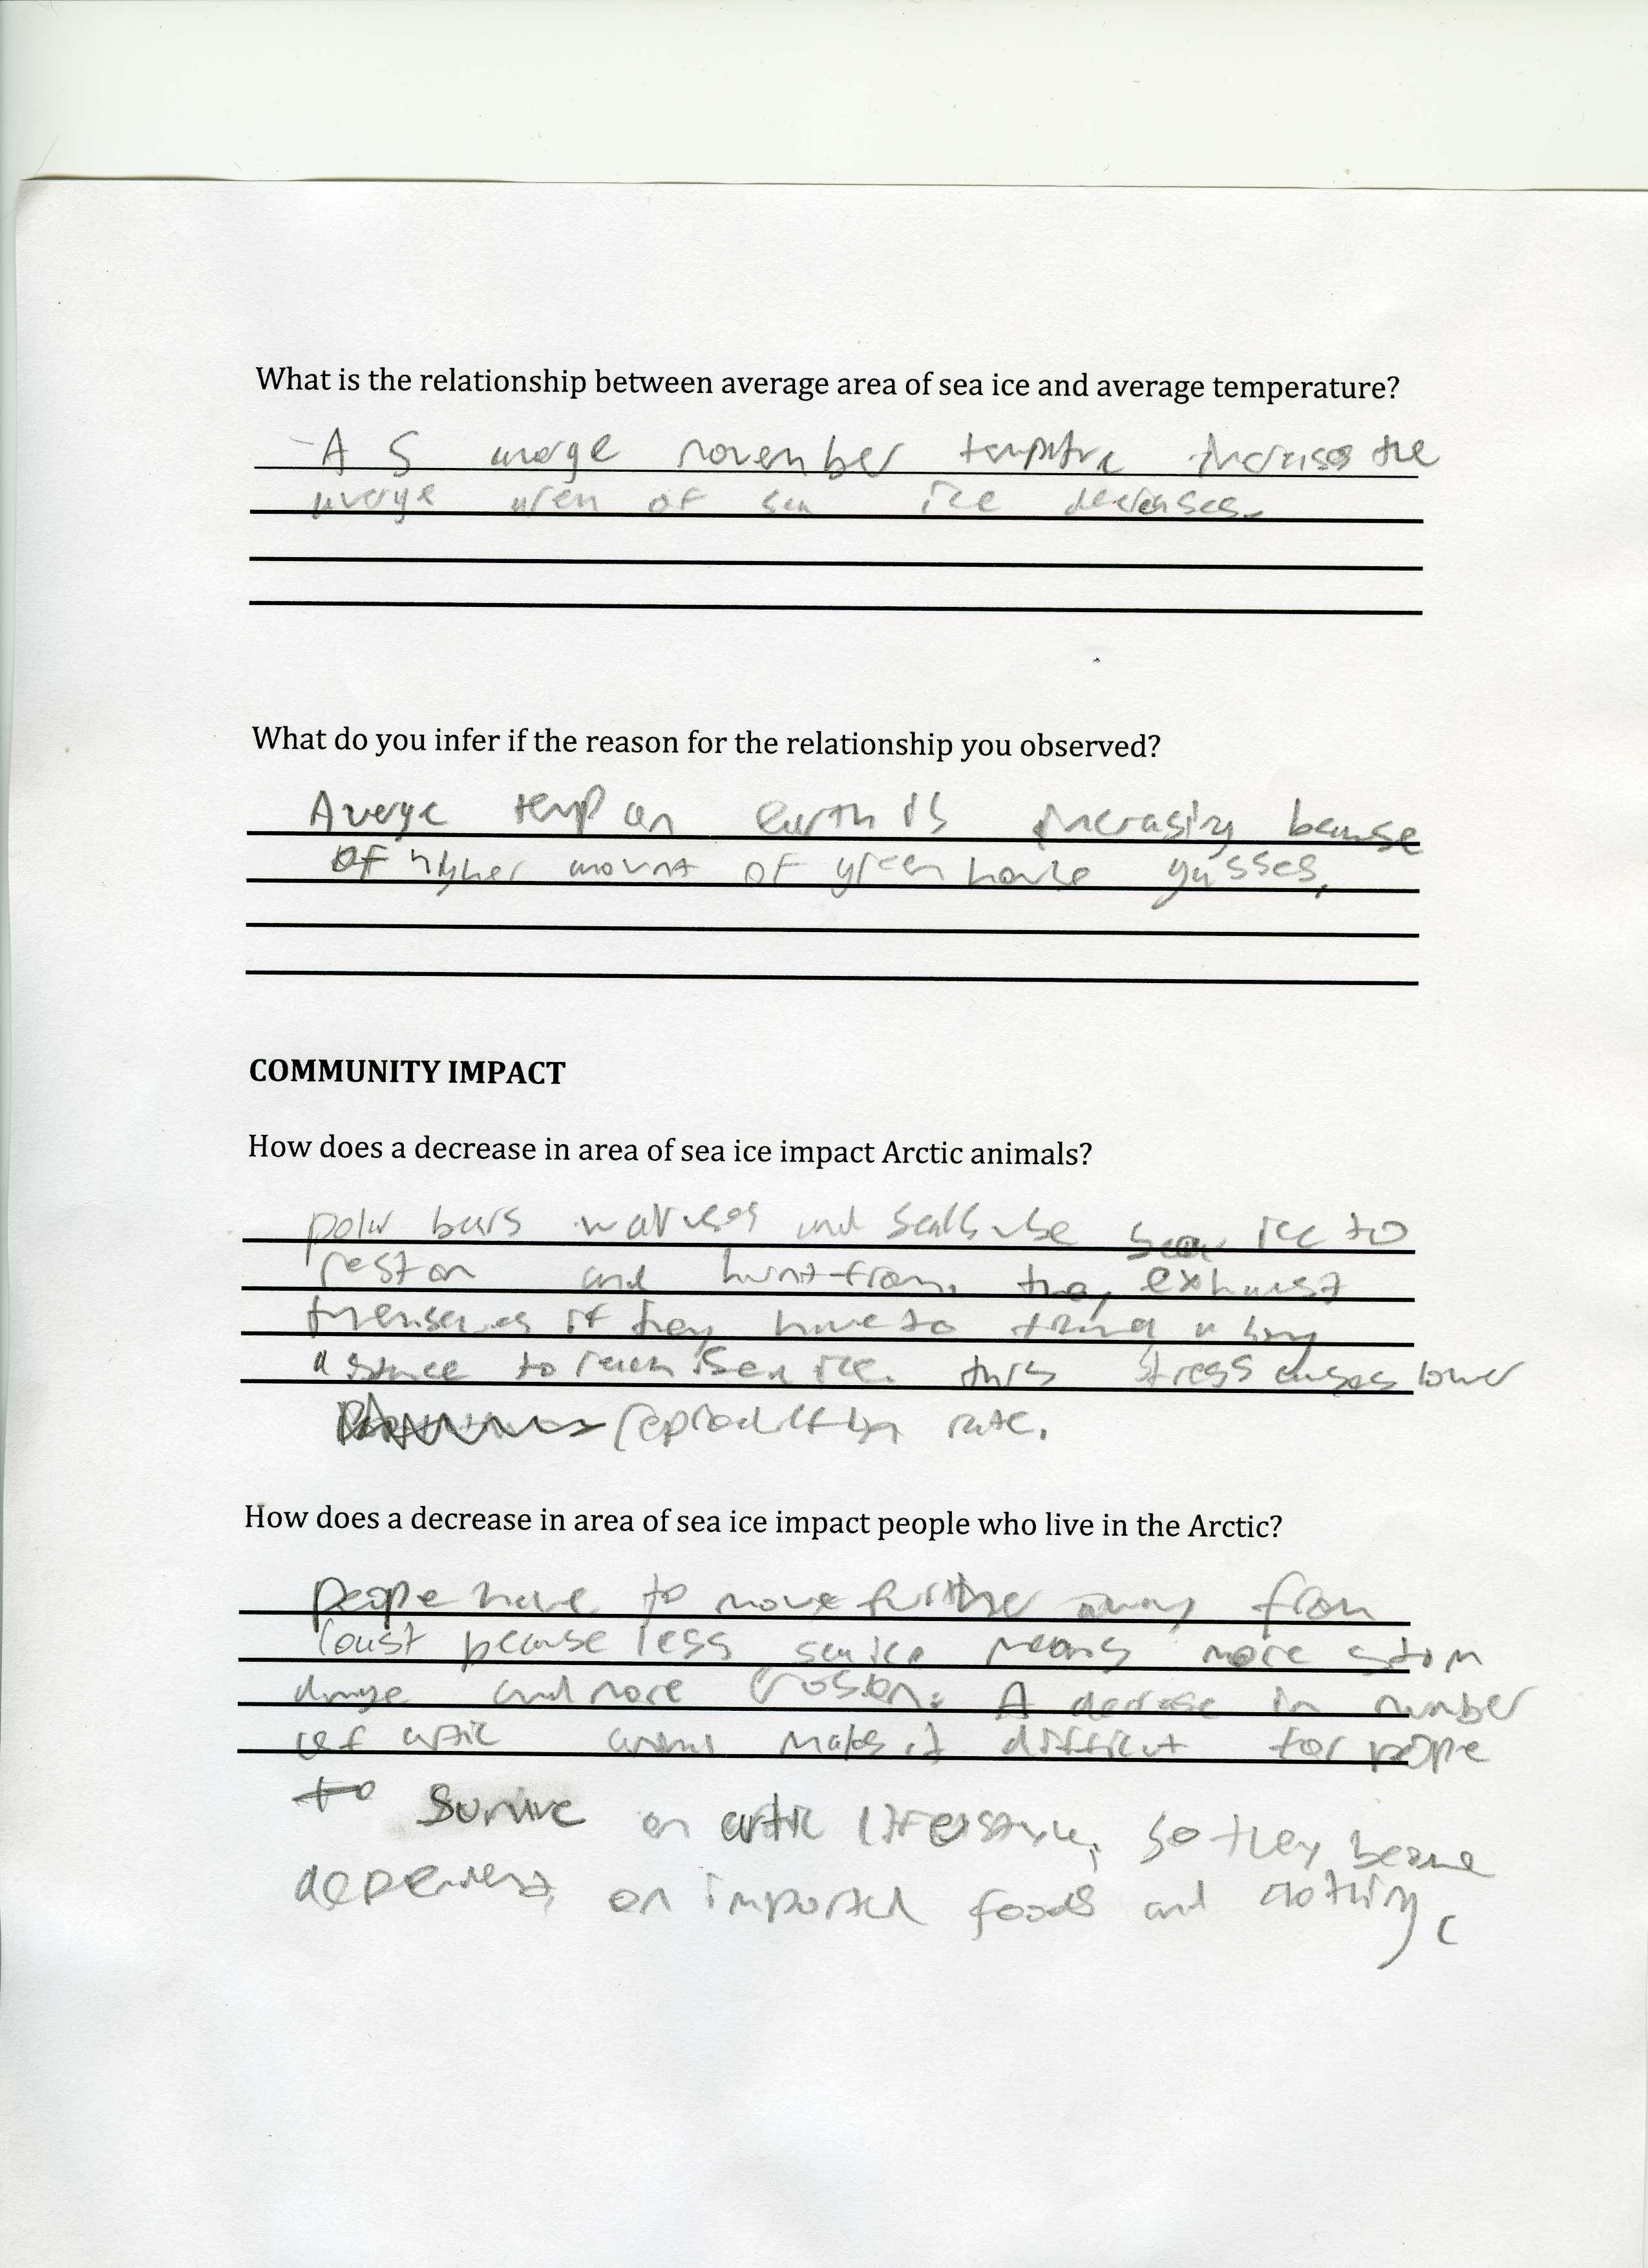 What is the relationship between average area of sea ice and average temperature?
A S averge november temprtre increases the
averge area of sea ice decreases.
What do you infer if the reason for the relationship you observed?
Averge temp on earth is increasing because
of higher amount of green house gasses,
COMMUNITY IMPACT
How does a decrease in area of sea ice impact Arctic animals?
polar bears walruses and seals use sea ice to
rest on and hunt from. they exhaust
themselves if they have to travel a long
distance to reach sea ice. this stress causes lower
reproduction rate.
How does a decrease in area of sea ice impact people who live in the Arctic?
people have to move further away from
coast because less sea ice means more storm
damage and more erosion. A decrease in number
of artic animals makes it difficult for people
to survive on artic lifestyle, so they became
dependent on imported foods and clothing